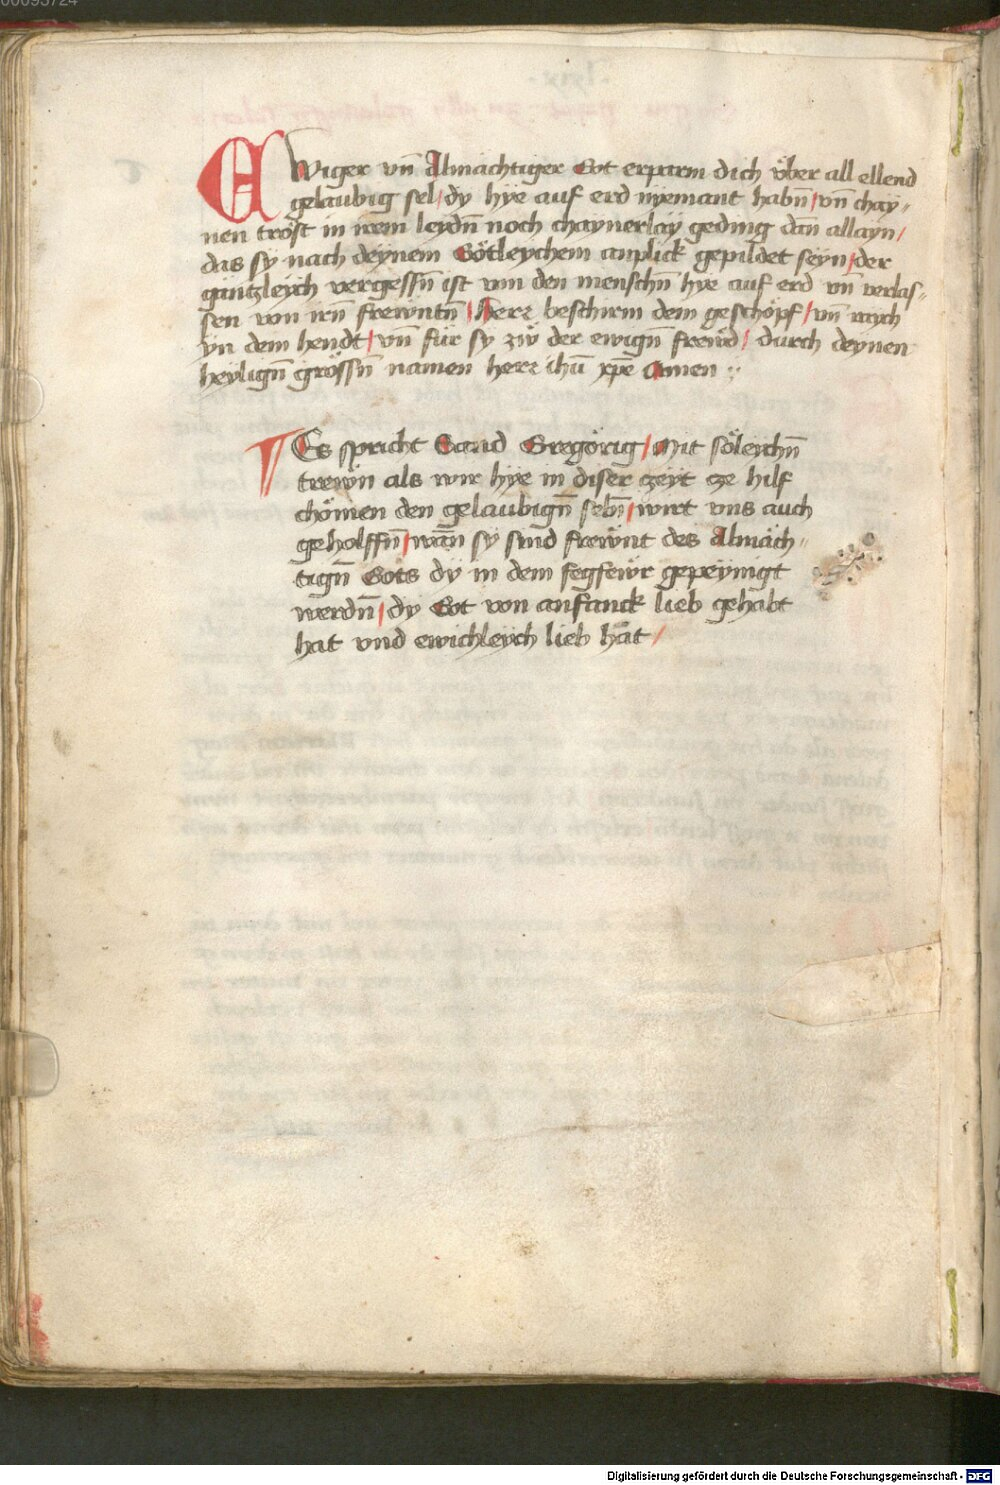 00095724
EWiger vn̄ Almächtiger Got erparm dich v̈ber all ellend
gelaubig sel / dy hÿe auf erd nÿemant habn̄ / vn̄ chay⸗
nen tröst in irem leydn̄ noch chaynerläÿ geding dan̄ allayn /
das sÿ nach deÿnem Götleychem anplick gepildet seÿn / der
gäntzleÿch vergessn̄ ist von den menschn̄ hÿe auf erd vn̄ verlas⸗
sen von irn̄ frewntn̄ / Herr beschirm dem geschöpf / vn̄ raych
yn dem hendt / vn̄ für sy zw̋ der ewign̄ frewd / durch deynen
heylign̄ grössn̄ namen herr ihū xp̄e Amen :
¶ Es spricht Sand Gregörig / Mit söleychn̄
trewn als wir hÿe in diser zeÿt ze hilf
chömen den gelaubign̄ seln̄ / wirt vns auch
geholffn̄ / wan̄ sÿ sind frewnt des Almäch⸗
tign̄ Gots dÿ in dem fegfewr gepeÿnigt
werdn̄ / dy Got von anfanck lieb gehabt
hat vnd ewichleÿch lieb hat /
Digitalisierung gefördert durch die Deutsche Forschungsgemeinschaft - DFG